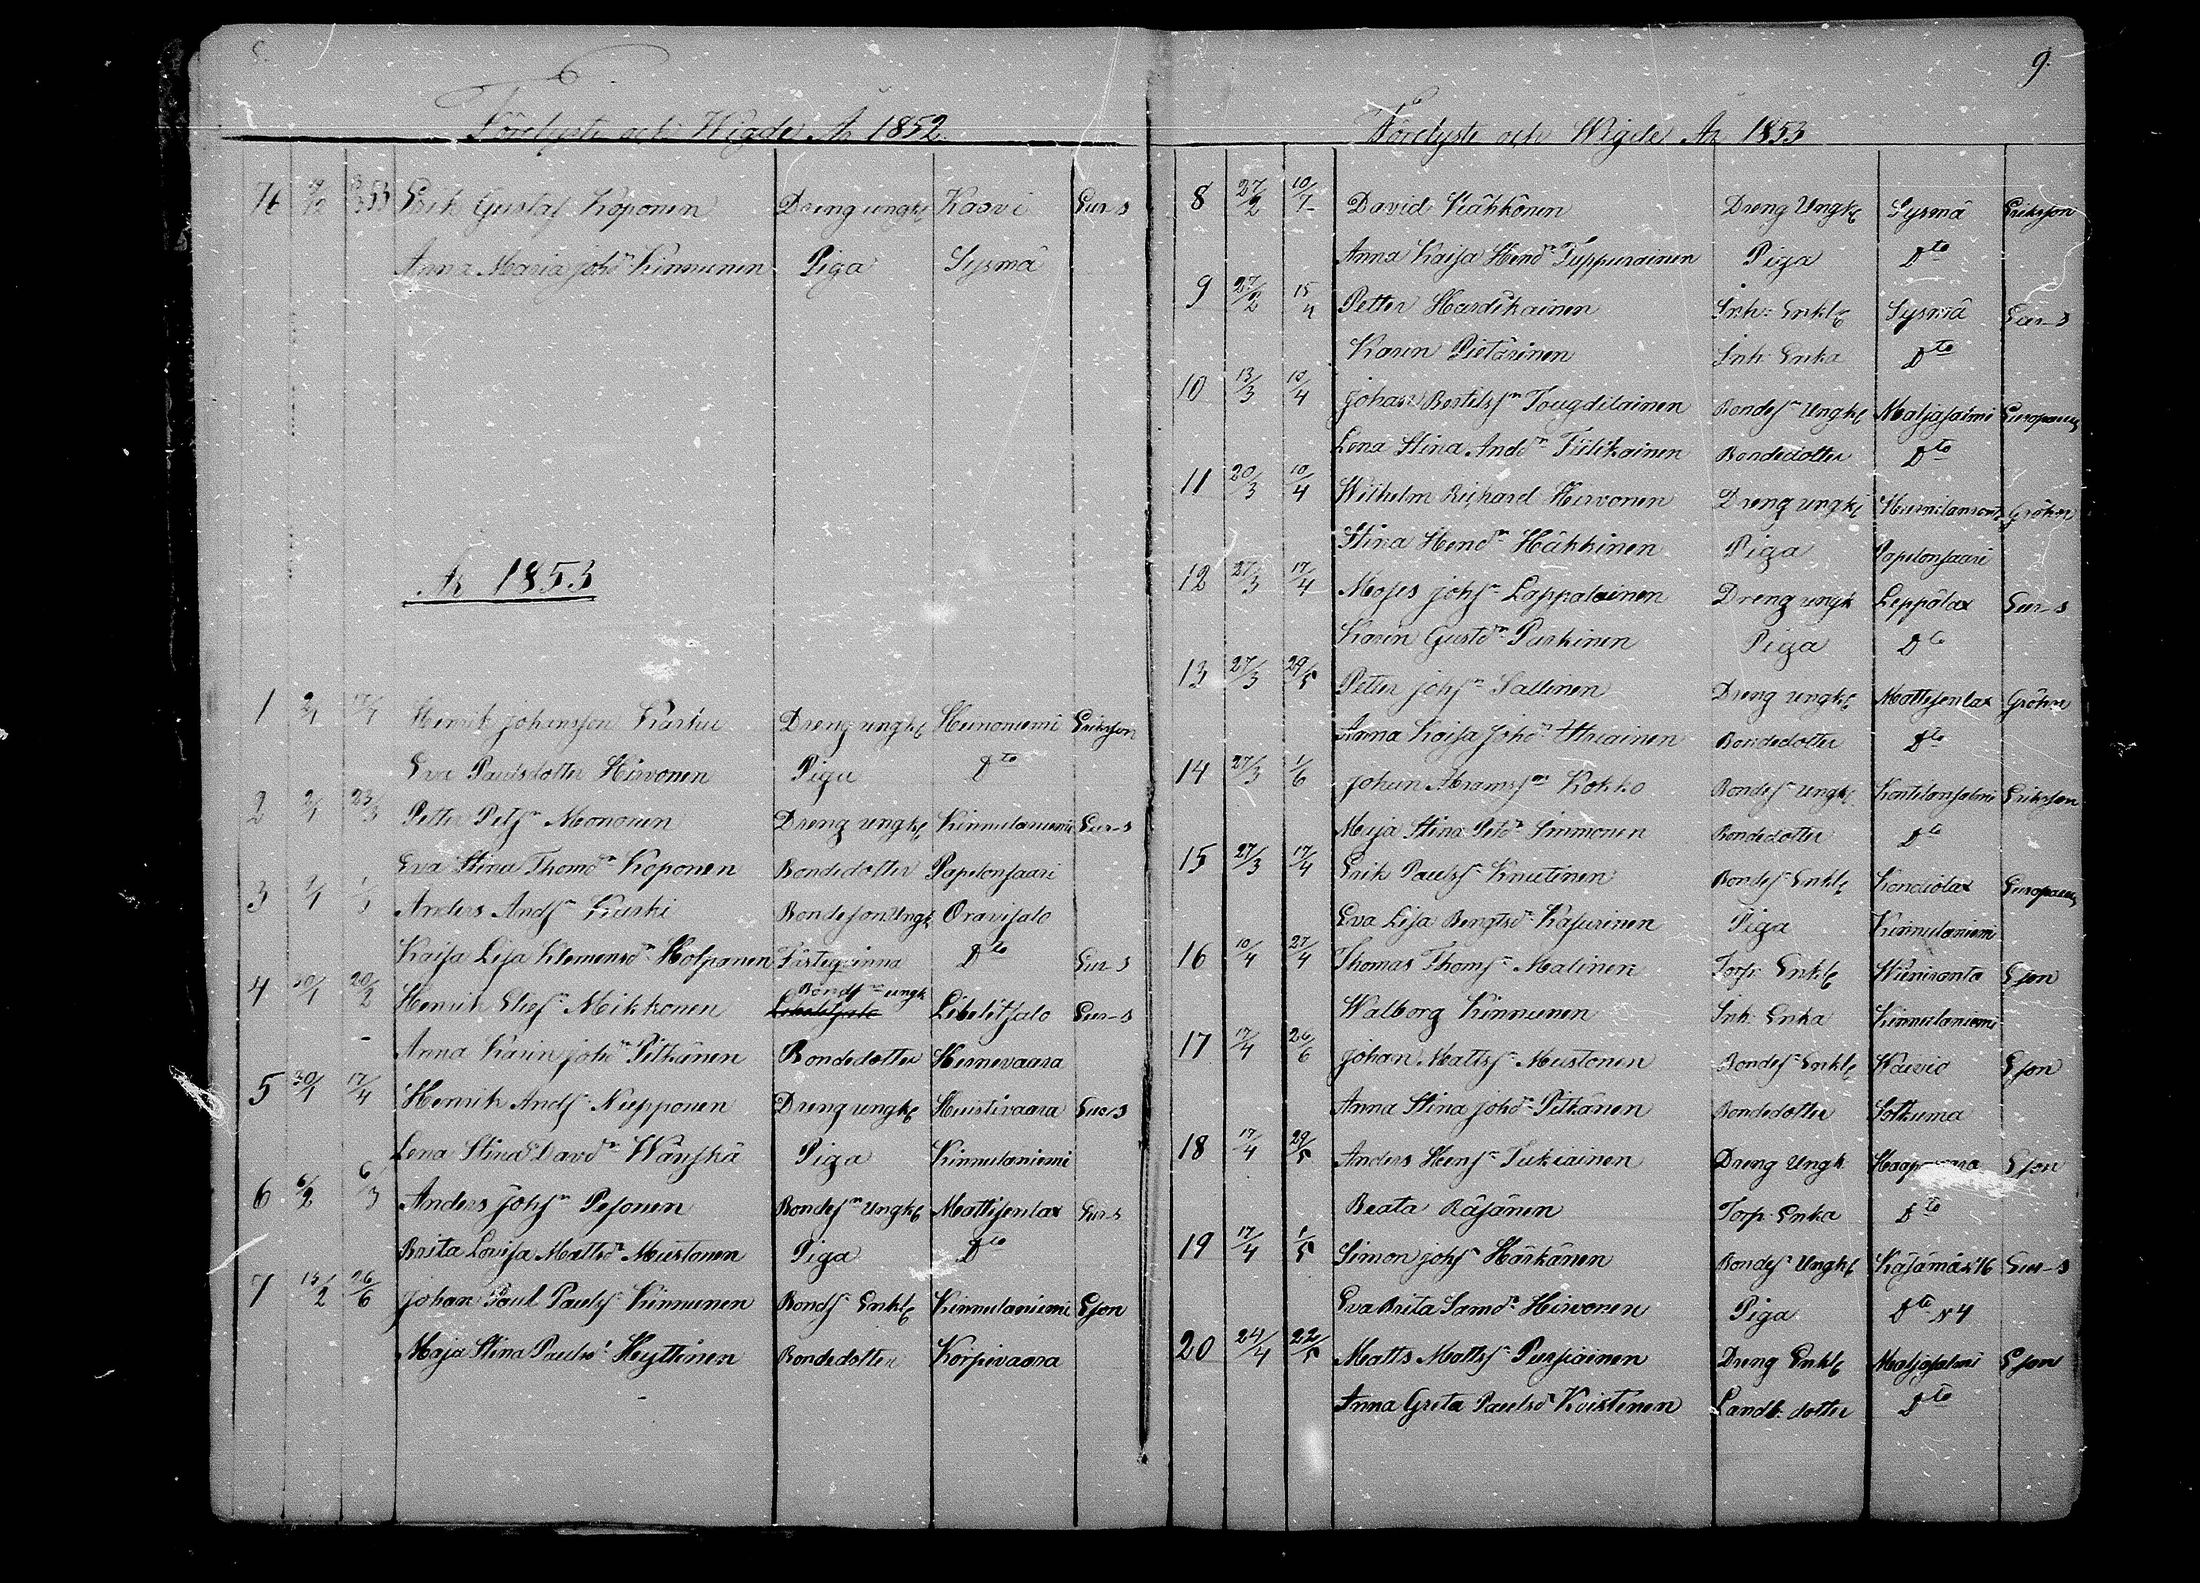 8.
Förelyste och Wigde År 1852.
76 19/12 53 Erik Gustaf Koponen Dreng ungk Kaavi Eur-s
Anna Maria Johd:r Kinnunen Piga Sysmä
År 1853
1 2/1 17/4 Henrik Johansson Karttu Dreng ungk Hunoniemi Eriksson
Eva Paulsdotter Hirvonen Piga Dto
2 2/1 23/3 Petter Petsn Mononen Dreng ungk Kinnulaniemi Eur-s
Eva Stina Thomdr Koponen Bondedotter Papelonsaari
3 1/1 1/3 Anders Andsn Kurki Bondeson Ungk Oravisalo
Kaisa Lisa Klemensdr Holpanen Fästeqvinna Dto Eur-s
4 30/1 20/2 Henrik Eliesn Mikkonen Bondsn ungk Libelitsalo Eur-s
Anna Karin Johdr Pitkänen Bondedotter Hernevaara
5 30/1 17/4 Henrik Andsn Nupponen Dreng ungk Huistivaara Eur-s
Lena Stina Davdr Wänskä Piga Kinnulaniemi
6 6/2 6/3 Anders Johsn Pesonen Bondesn ungk Mattisenlax Eur-s
Brita Lovisa Mattsdr Mustonen Piga Dto
7 13/2 26/6 Johan Paul Paulsn Kinnunen Bondsn Enkl Kinnulaniemi Eson
Maja Stina Paulsdr Hyttinen Bondedotter Korpivaara
9.
Förelyste och Wigde År 1853
8 27/2 10/7 David Kähkönen Dreng Ungk Sysmä Eriksson
Anna Kaisa Hendr Tuppurainen Piga Dto
9 27/2 15/4 Petter Hardikainen Inh: Enkl Sysmä Eur-s
Karin Pietarinen Inh: Enka Dto
10 13/3 10/4 Johan Bertilsn Tougdilainen Bondesn Ungk Maljasalmi Europaeus
Lena Stina Anddr Tiilikainen Bondedotter Dto
11 20/3 10/4 Wilhelm Richard Hirvonen Dreng ungk Gröhn
Stina Hendr Häkkinen Piga Papelonsaari
12 27/3 17/4 Moses Johsn Lappalainen Dreng ungk Leppälax Eur-s
Karin Gustdr Parkinen Piga Dto
13 27/3 29/5 Petter Johsn Sallinen Dreng ungk Mattisenlax Gröhn
Anna Kaisa Johdr Uhiainen Bondedotter Dto
14 27/3 1/6 Johan Abramsn Kokko Bondesn Ungk Kontilonsalmi Eriksson
Maja Stina Petdr Simmonen Bondedotter Dto
15 27/3 17/4 Erik Paulsn Knutinen Bondesn Enkl Kondiolax Europaeus
Eva Lisa Bengtsdr Kasurinen Piga Kinnulaniemi
16 10/4 27/4 Thomas Thomsn Malinen Torp: Enkl Wiiniranta Eson
Walborg Kinnunen Inh: Enka Kinnulaniemi
17 17/4 26/6 Johan Mattsn Mustonen Bondesn Enkl Waivio Eson
Anna Stina Johdr Pitkänen Bondedotter Sotkuma
18 17/4 29/5 Anders Hensn Tukiainen Dreng Ungk Haapovaara Eson
Beata Räsänen Torp: Enka Dto
19 17/4 1/5 Simon Johsn Härkänen Bondesn Ungk Käsämä N 16 Eur-s
Eva Brita Samdr Hirvonen Piga Dto N 4
20 24/4 22/5 Matts Mattsn Purpiainen Dreng Enkl Maljasalmi Eson
Anna Greta Paulsdr Koistinen Landb: dotter Dto